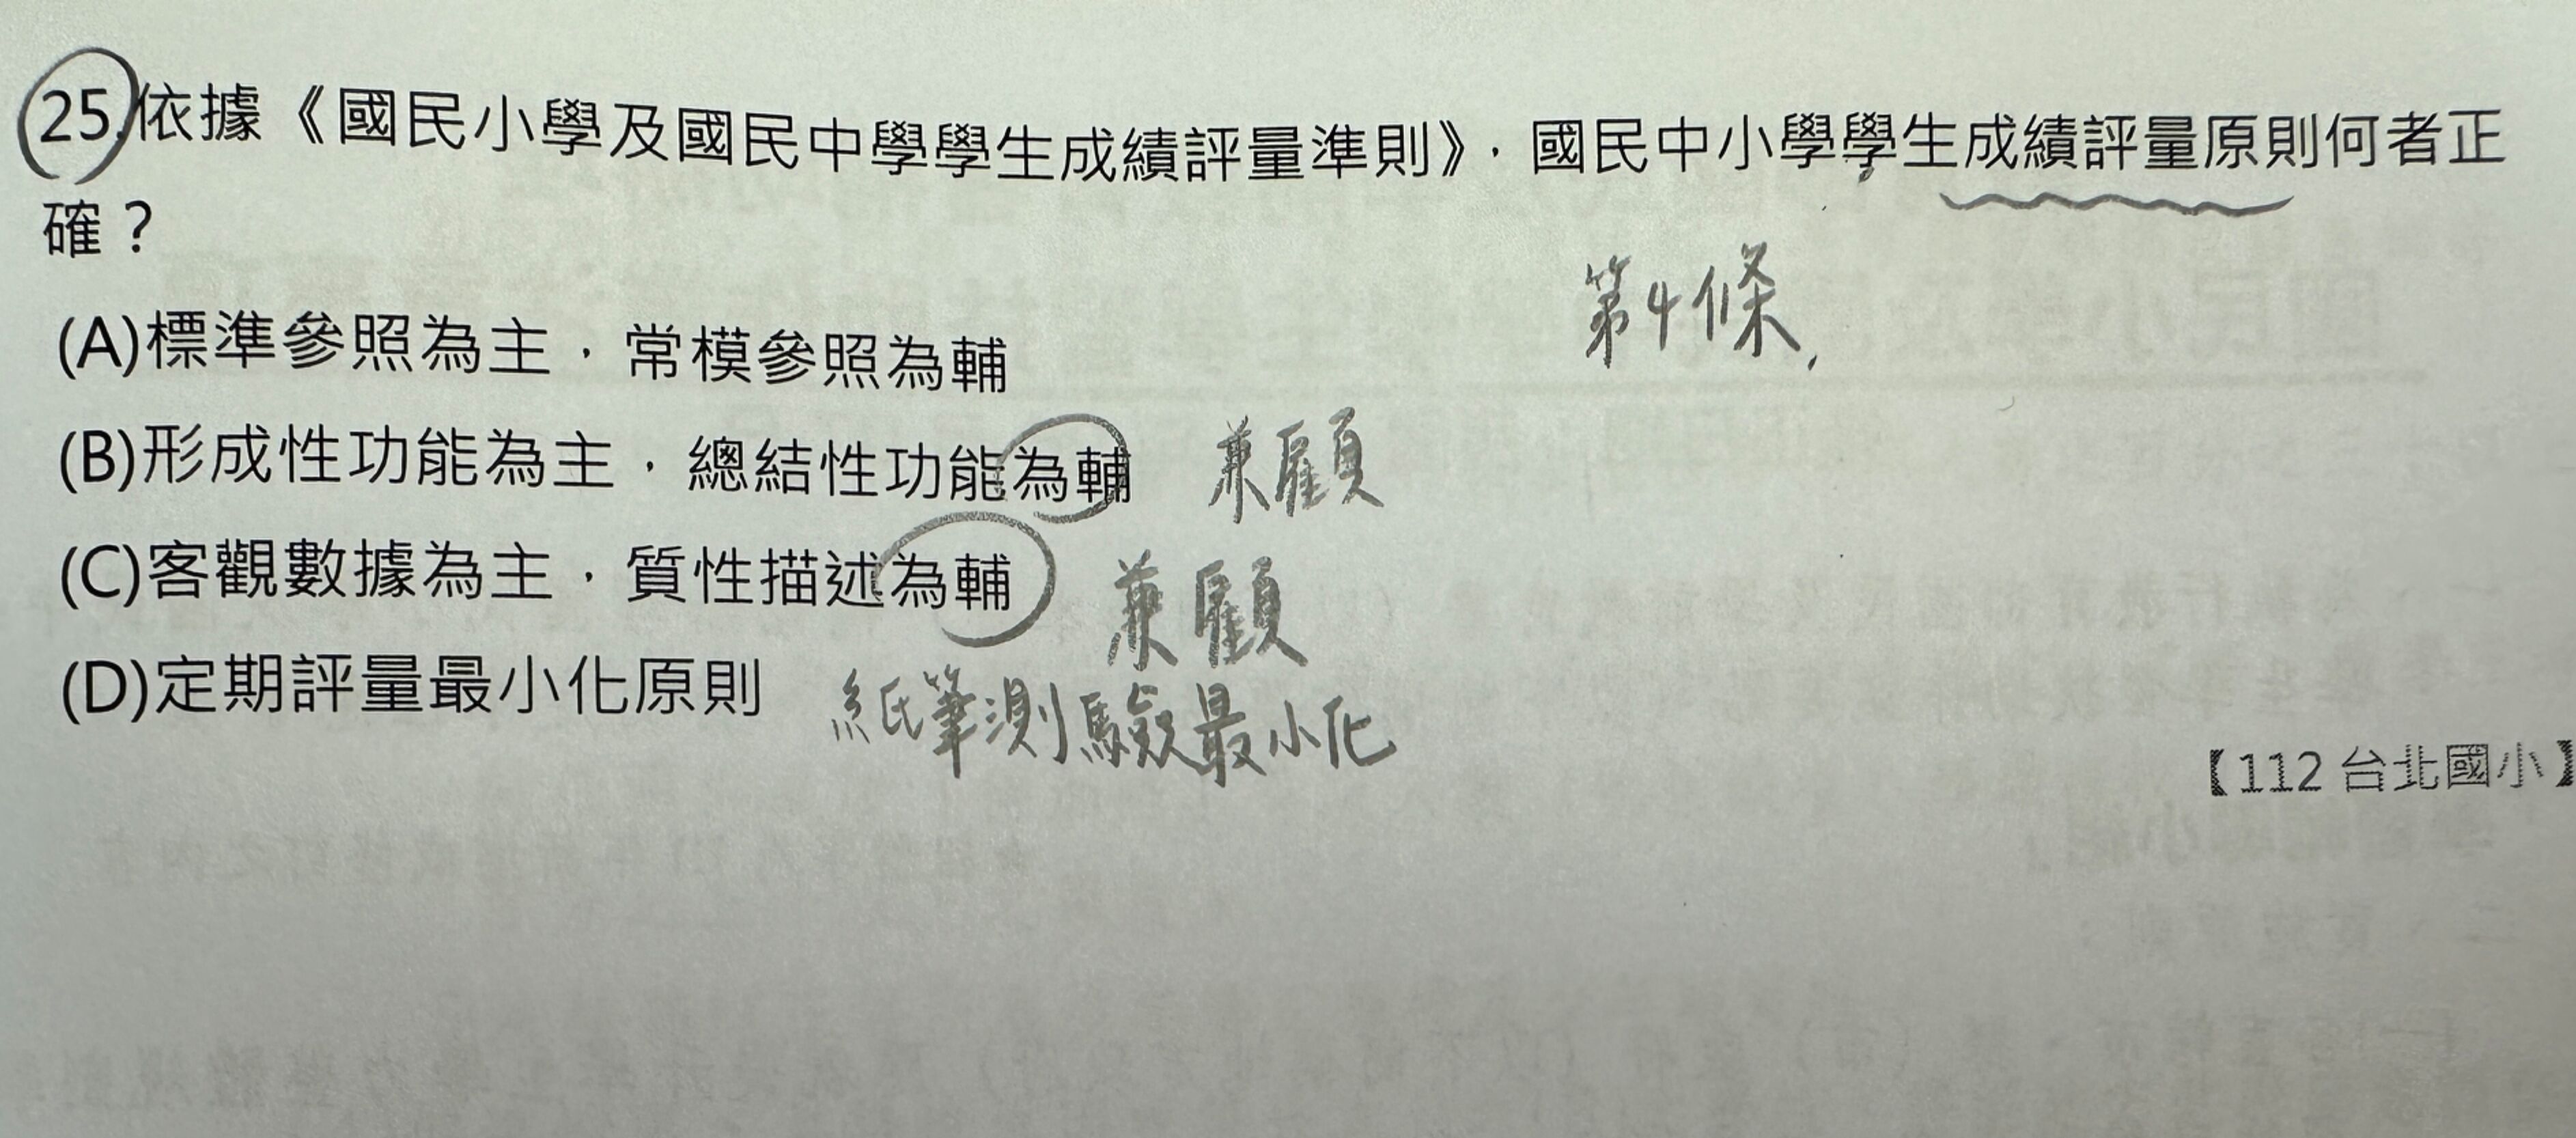 25.依據《國民小學及國民中學學生成績評量準則》，國民中小學學生成績評量原則何者正
確？
第4條,
(A)標準參照為主，常模參照為輔
(B)形成性功能為主，總結性功能為輔 兼顧
(C)客觀數據為主，質性描述為輔 兼顧
(D)定期評量最小化原則 紙筆測驗最小化
【112 台北國小】